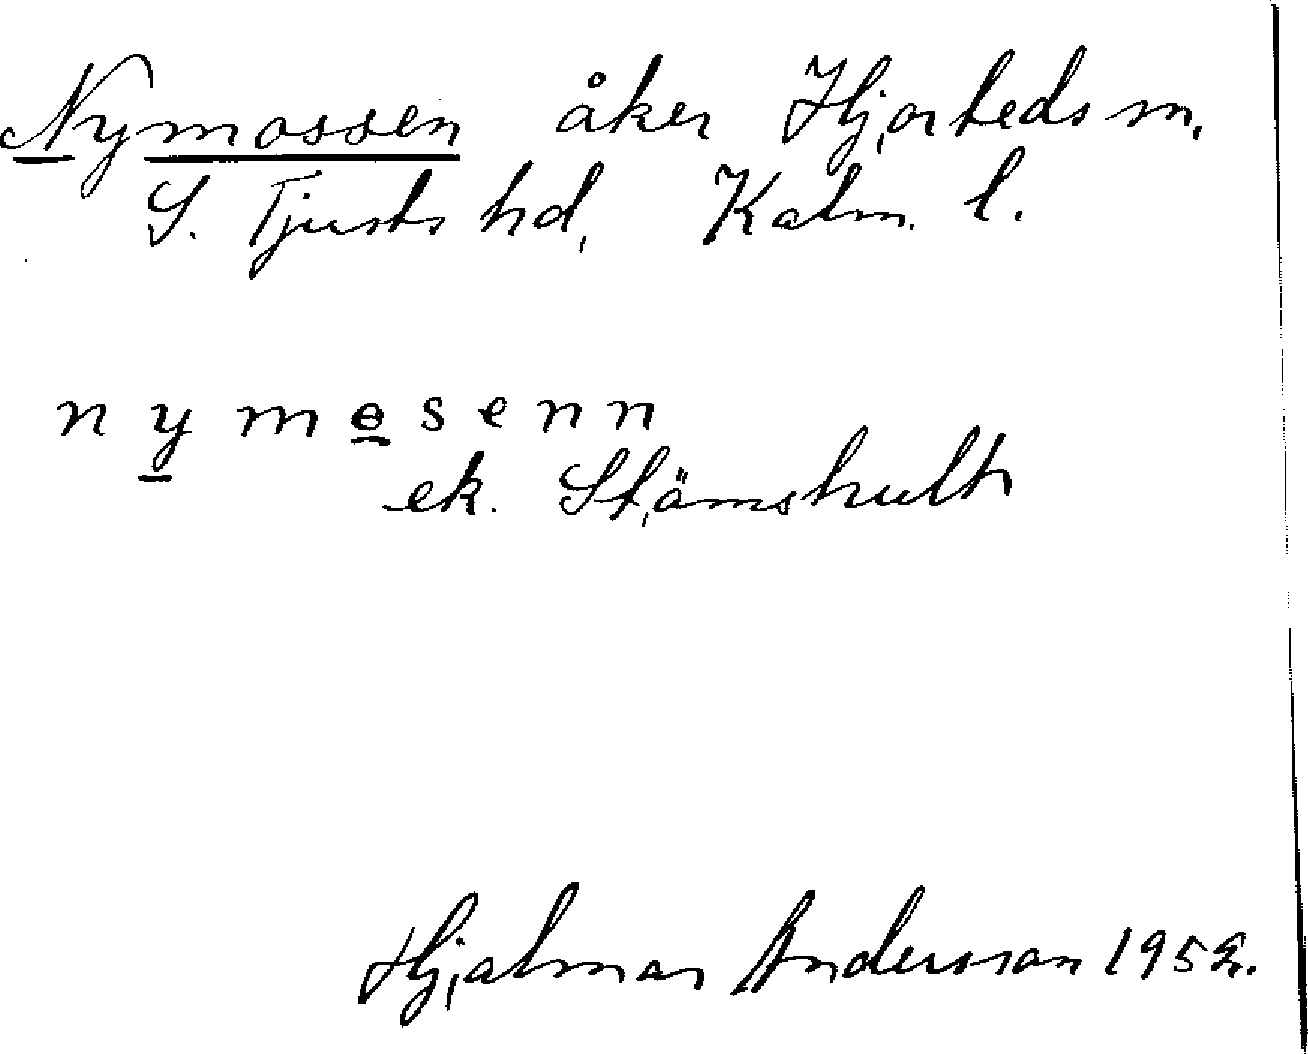 Nymossen åker Hjorteds sn.
S. Tjusts hd. Kalm. l.
nymosenn
ek. Stjämshult
Hjalmar Andersson 1952.